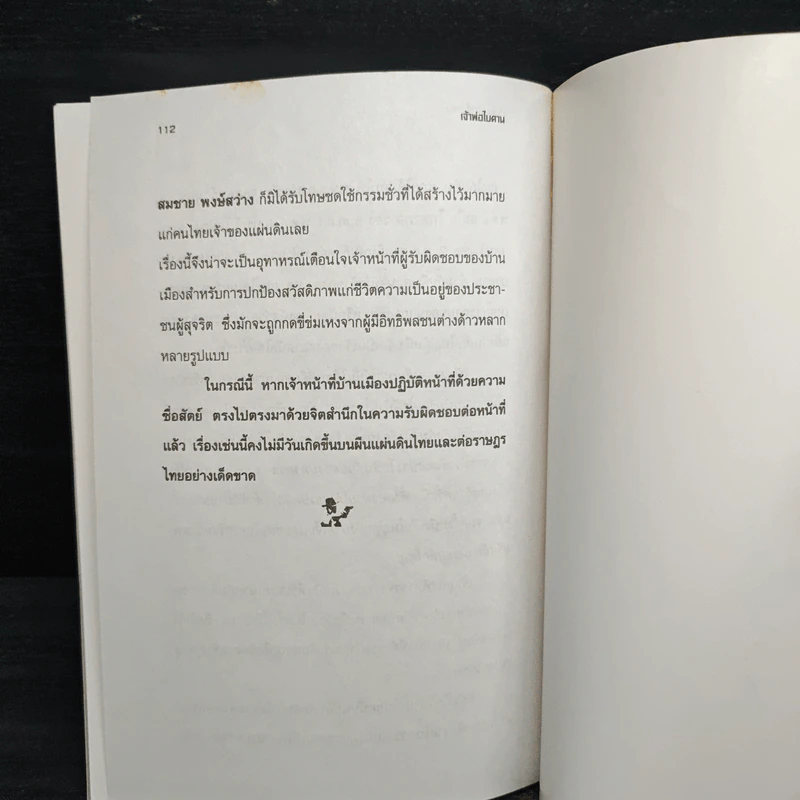 112
เจ้าพ่อไบคาน
สมชาย พงษ์สว่าง ก็มิได้รับโทษชดใช้กรรมชั่วที่ได้สร้างไว้มากมาย
แก่คนไทยเจ้าของแผ่นดินเลย
เรื่องนี้จึงน่าจะเป็นอุทาหรณ์เตือนใจเจ้าหน้าที่ผู้รับผิดชอบของบ้าน
เมืองสำหรับการปกป้องสวัสดิภาพแก่ชีวิตความเป็นอยู่ของประชา-
ชนผู้สุจริต ซึ่งมักจะถูกกดขี่ข่มเหงจากผู้มีอิทธิพลชนต่างด้าวหลาก
หลายรูปแบบ
ในกรณีนี้ หากเจ้าหน้าที่บ้านเมืองปฏิบัติหน้าที่ด้วยความ
ซื่อสัตย์ ตรงไปตรงมาด้วยจิตสำนึกในความรับผิดชอบต่อหน้าที่
แล้ว เรื่องเช่นนี้คงไม่มีวันเกิดขึ้นบนผืนแผ่นดินไทยและต่อราษฎร
ไทยอย่างเด็ดขาด